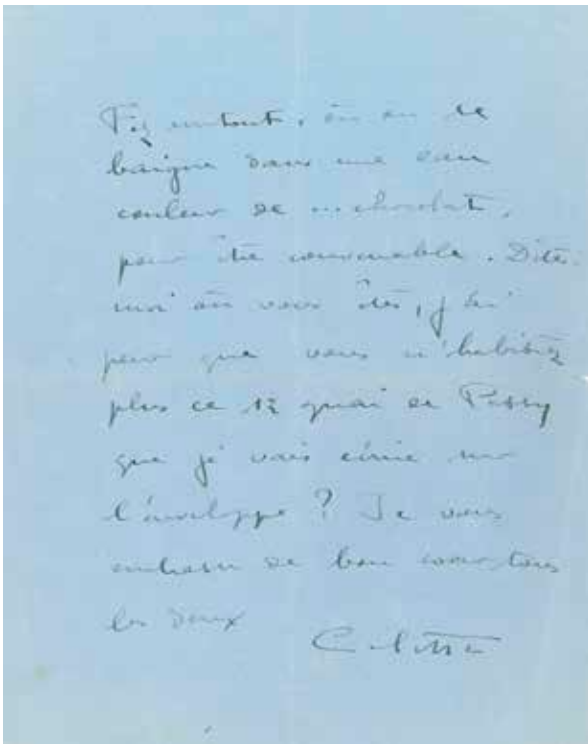 Fez surtout, où on se
baigne dans une eau
couleur de chocolat,
pour être convenable. Dites-
moi où vous êtes, j'ai
peur que vous n'habitiez
plus ce 12 quai de Passy
que je vais écrire sur
l'enveloppe ? Je vous
embrasse de bon cœur tous
les deux
Colette